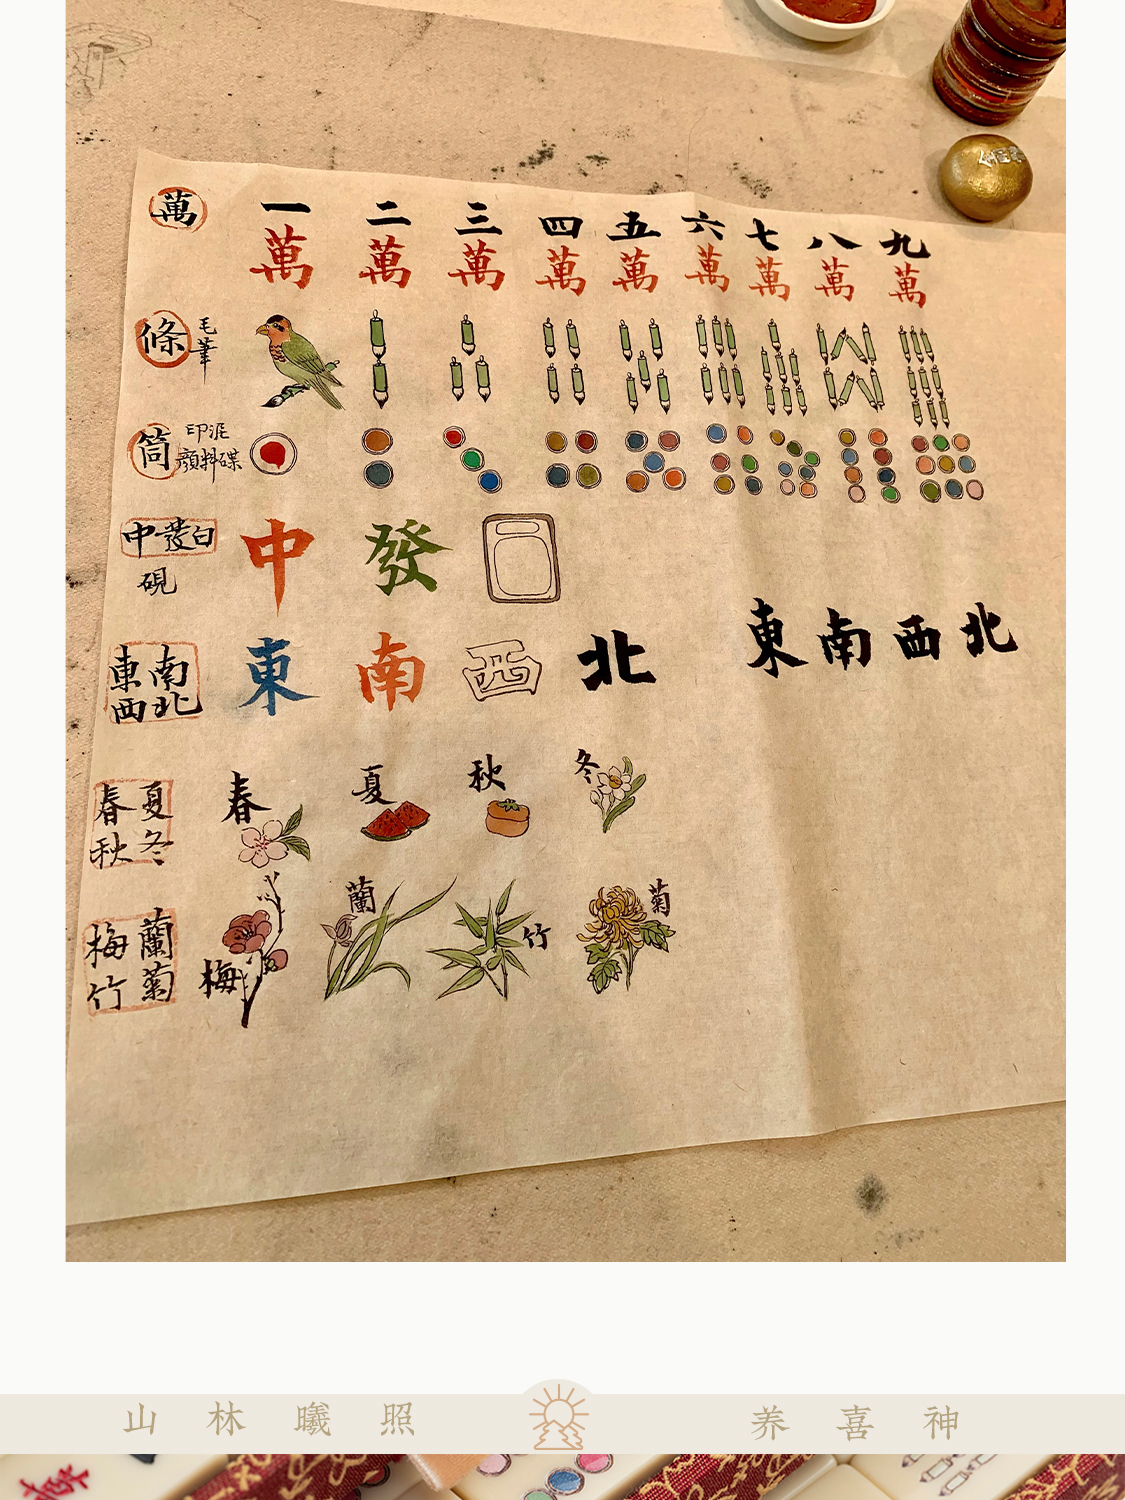 萬 一 二 三 四 五 六 七 八 九
萬 萬 萬 萬 萬 萬 萬 萬 萬
條 毛筆
筒 印泥
顏料碟
中發白 中 發
硯
東南 東 南 西 北 東 南 西 北
西北
春夏 春 夏 秋 冬
秋冬
梅蘭 梅 蘭 竹 菊
竹菊
山林曦照 养喜神